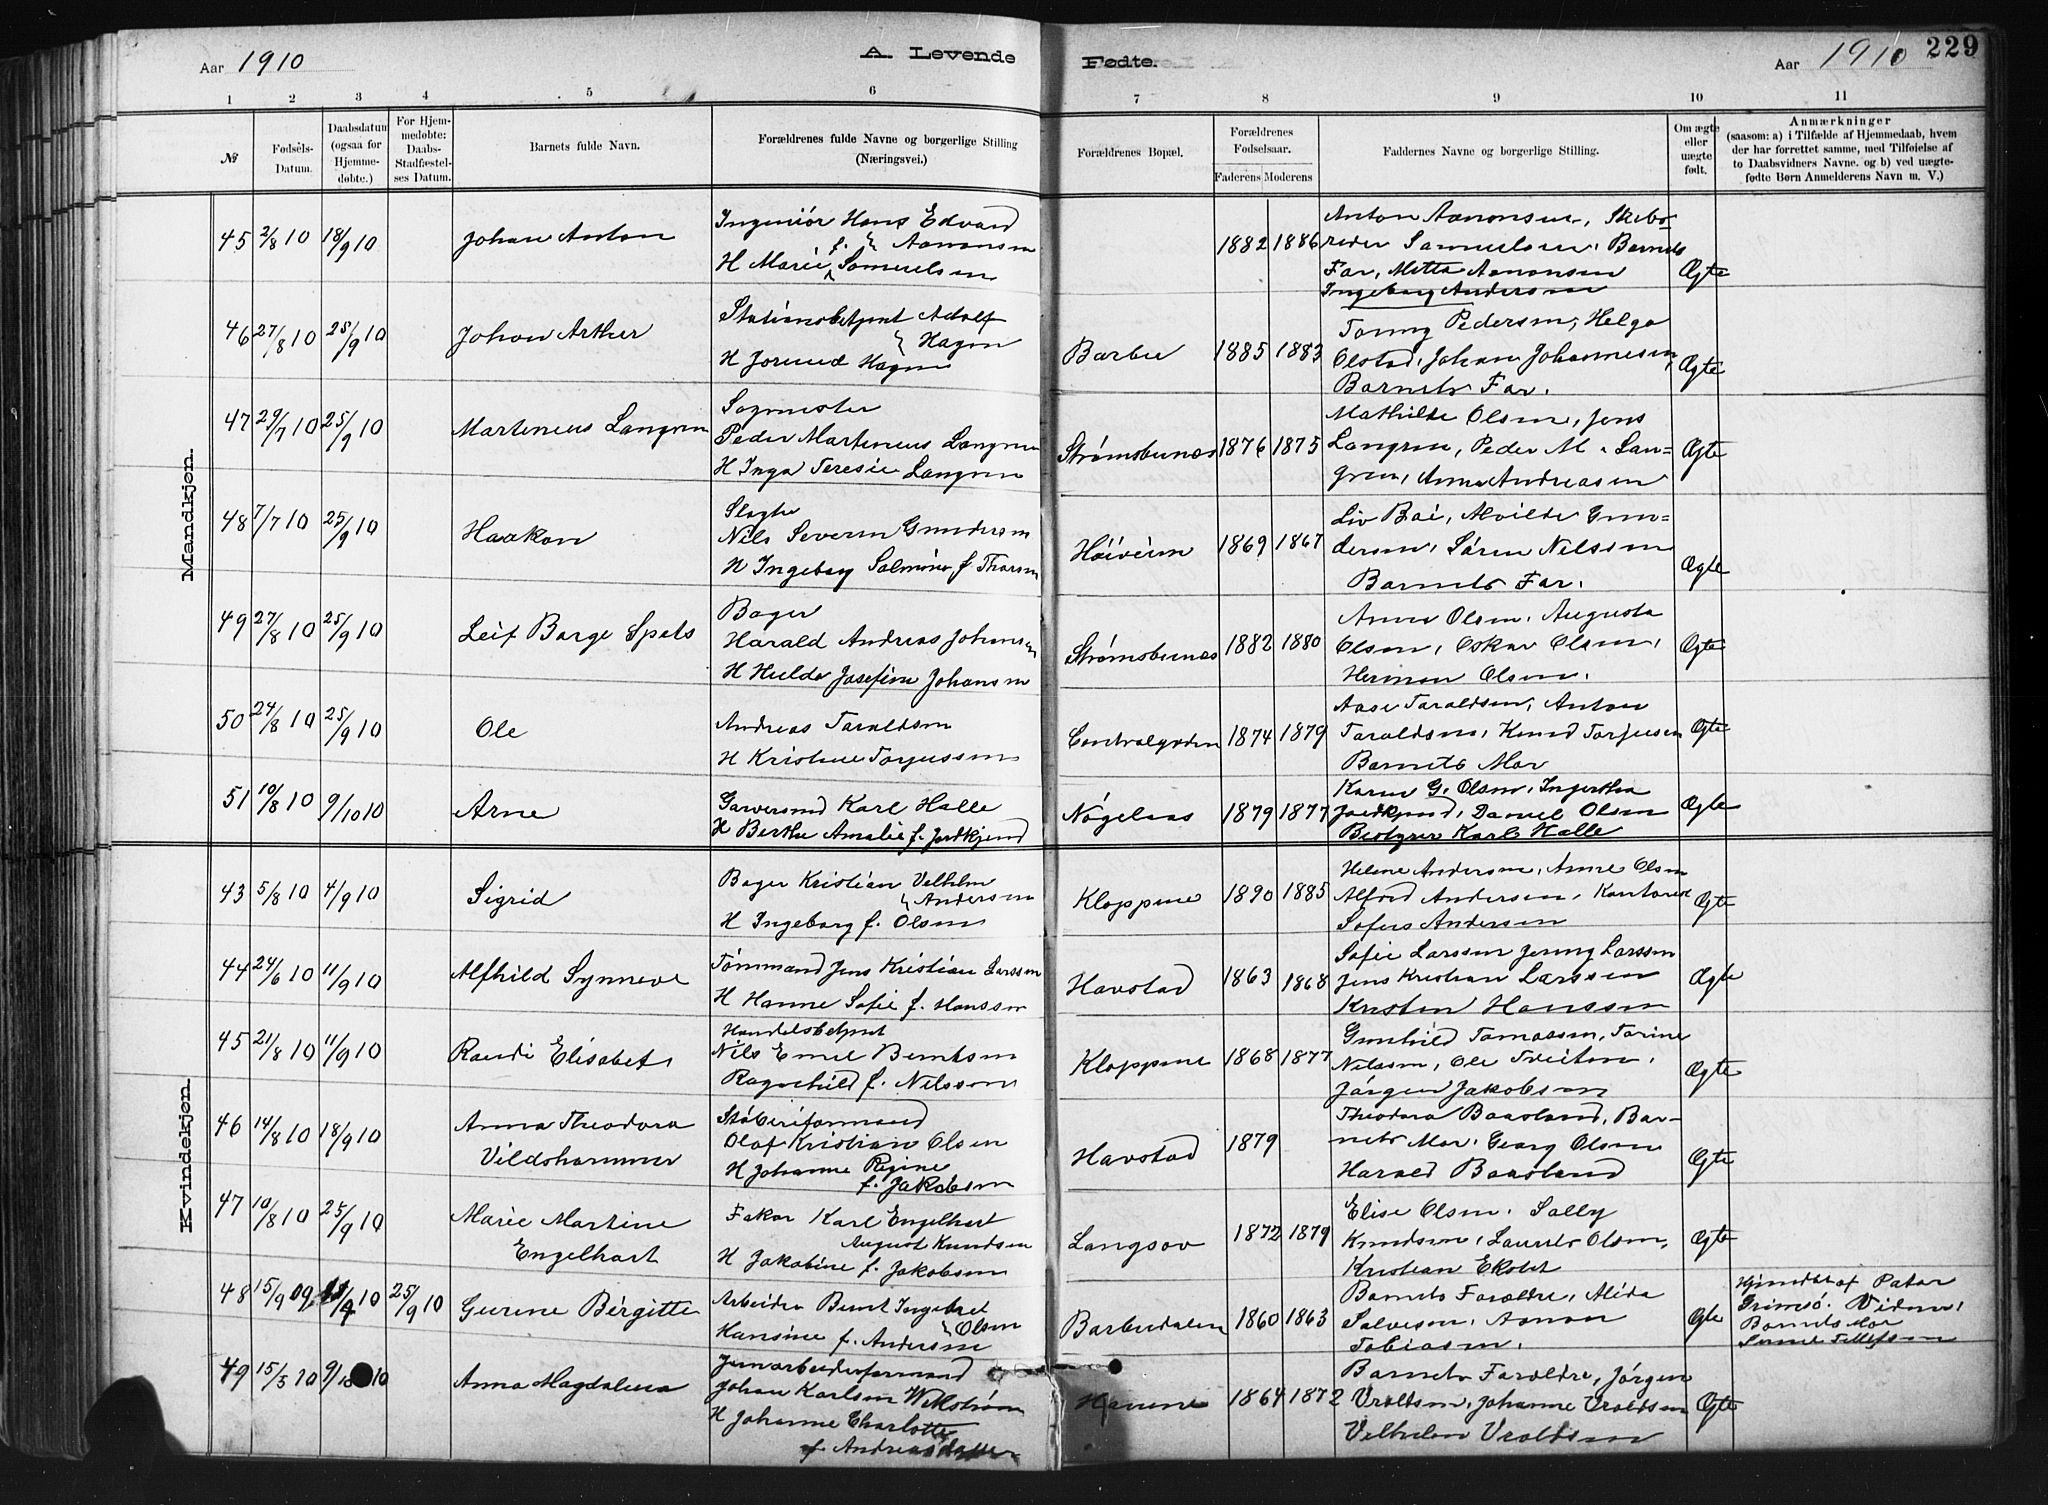 Aar 1910
A. Levende
Fødte.
Aar 1910
229
1 2 3 4 5 6 7 8 9 10 11
№
Fødsels-Datum.
Daabsdatum (ogsaa for Hjemme-døbte.)
For Hjem-medøbte: Daabs-Stadfæstel-ses Datum.
Barnets fulde Navn.
Forældrenes fulde Navne og borgerlige Stilling
(Næringsvei.)
Forældrenes Bopæl.
Forældrenes Fødselsaar.
Faderens Moderens
Faddernes Navne og borgerlige Stilling.
Om ægte eller uægte født.
Anmærkninger
(saasom: a) i Tilfælde af Hjemmedaab, hvem
der har forrettet samme, med Tilføielse af
to Daabsvidners Navne. og b) ved uægte-
fødte Børn Anmelderens Navn m. V.)
Mandkjøn.
45 2/8 10 18/9 10 Johan Anton
Ingeniör Hans Edvard
Aanonsen
H Marie f. Samuelsen
1882 1886
Anton Aanonsen, Skibs-
reder Samuelsen, Barnets
Far, Mette Aanonsen
Ingeborg Andersen
Ægte
46 27/8 10 25/9 10 Johan Arther
Stationsbetjent Adolf
Hagen
H Jorund Hagen
Barbu 1885 1883
Tomy Pedersen, Helga
Olstad, Johan Johannesen,
Barnets Far.
Ægte
47 29/7 10 25/9 10 Martenius Langren
Sagmester
Peder Martenius Langren
H Inga Teresie Langren
Strømsbunæs 1876 1875
Mathilde Olsen, Jens
Langren, Peder M. Lan=
gren, Anna Andreasen
Ægte
48 7/7 10 25/9 10 Haakon
Slagter
Nils Severin Gundersen
H Ingeborg Salmine f. Thorsen
1869 1867
Liv Boi, Alvilde Gun=
dersen, Sören Nilssen
Barnets Far.
Ægte
49 27/8 10 25/9 10 Leif Borge Spets
Bager
Harald Andreas Johansen
H Hulda Josefine Johansen
Strømsbunæs 1882 1880
Anna Olsen, Augusta
Olsen, Oskar Olsen,
Herman Olsen.
Ægte
50 24/8 10 25/9 10 Ole
Andreas Taraldsen
H Kristine Torjussen
Centralgaden 1874 1879
Aase Taraldsen, Anton
Taraldsen, Knud Torjusen
Barnets Mor
Ægte
51 10/8 10 9/10 10 Arne
Garversvend Karl Halle
H Berthe Amalie f. Jordkjend
Nøgelaas 1879 1877
Karen G. Olsen, Ingertha
Jordkjend, Daniel Olsen
Bestyrer Karl Halle
Ægte
Kvindekjøn.
43 5/8 10 4/9 10 Sigrid
Bager Kristian Velhelm
Andersen
H Ingeborg f. Olsen
Kloppene 1890 1885
Helene Andersen, Anne Olsen
Alfred Andersen, Kontorist
Sofus Andersen
Ægte
44 24/6 10 11/9 10 Alfhild Synnøve
Tømmand Jens Kristian Larssen
H Hanne Sofie f. Hanssen
Havstad 1863 1868
Sofie Larssen Jenny Larssen
Jens Kristian Larssen
Kristen Hanssen
Ægte
45 21/8 10 11/9 10 Randi Elisabet
Handelsbetjent
Nils Emil Berntsen
Ragnhild f. Nilsson
Kloppene 1868 1877
Gunhild Tomassen, Torine
Nilssen, Ole Tveiten,
Jörgen Jakobsen
Ægte
46 14/8 10 18/9 10 Anna Theodora
Vildshammer
Støberiformand
Olaf Kristian Olsen
H Johanne Regine
f. Jakobsen
Havstad 1879
Theodora Baasland, Bar-
nets Mor, Georg Olsen
Harald Baasland
Ægte
47 10/8 10 25/9 10 Marie Martine
Engelhart
Karl Engelhart
August Knudsen
H Jakobine f. Jakobsen
Langsæv 1872 1879
Elise Olsen, Sally
Knudsen, Laurits Olsen,
Kristian Ekelet
Ægte
48 15/9 09 10 25/9 10 Gurine Bergitte
Arbeider Bernt Ingebret
Olsen
Hansine f. Andersen
Barbudalen 1860 1863
Barnets Forældre, Alida
Salvesen, Aanon
Tobiasen.
Ægte
Hjemdbt af Petar
Grimsö. Vidne:
Barnets Mor
Tellefsen
49 15/5 10 9/10 10 Anna Magdalena
Jernarbeiderformand
Johan Karlsen Wekstrøm
H Johanne Charlotte
f. Andreasdatter
1864 1872
Barnets Forældre, Jörgen
Vroldsen, Johanne Vroldsen
Velhelm Vroldsen
Ægte